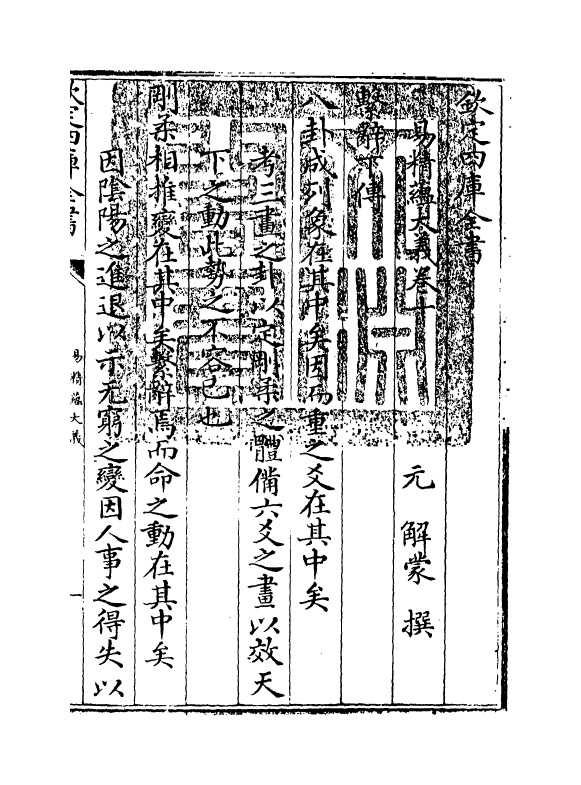 欽定四庫全書
易精蘊大義卷十
元 解蒙 撰
繫辭下傳
八卦成列象在其中矣因而重之爻在其中矣
考三畫之卦以定剛柔之體備六爻之畫以效天
下之動此勢之不容已也
剛柔相推變在其中矣繫辭焉而命之動在其中矣
因陰陽之進退以示无窮之變因人事之得失以
欽定四庫全書
易精蘊大義
一